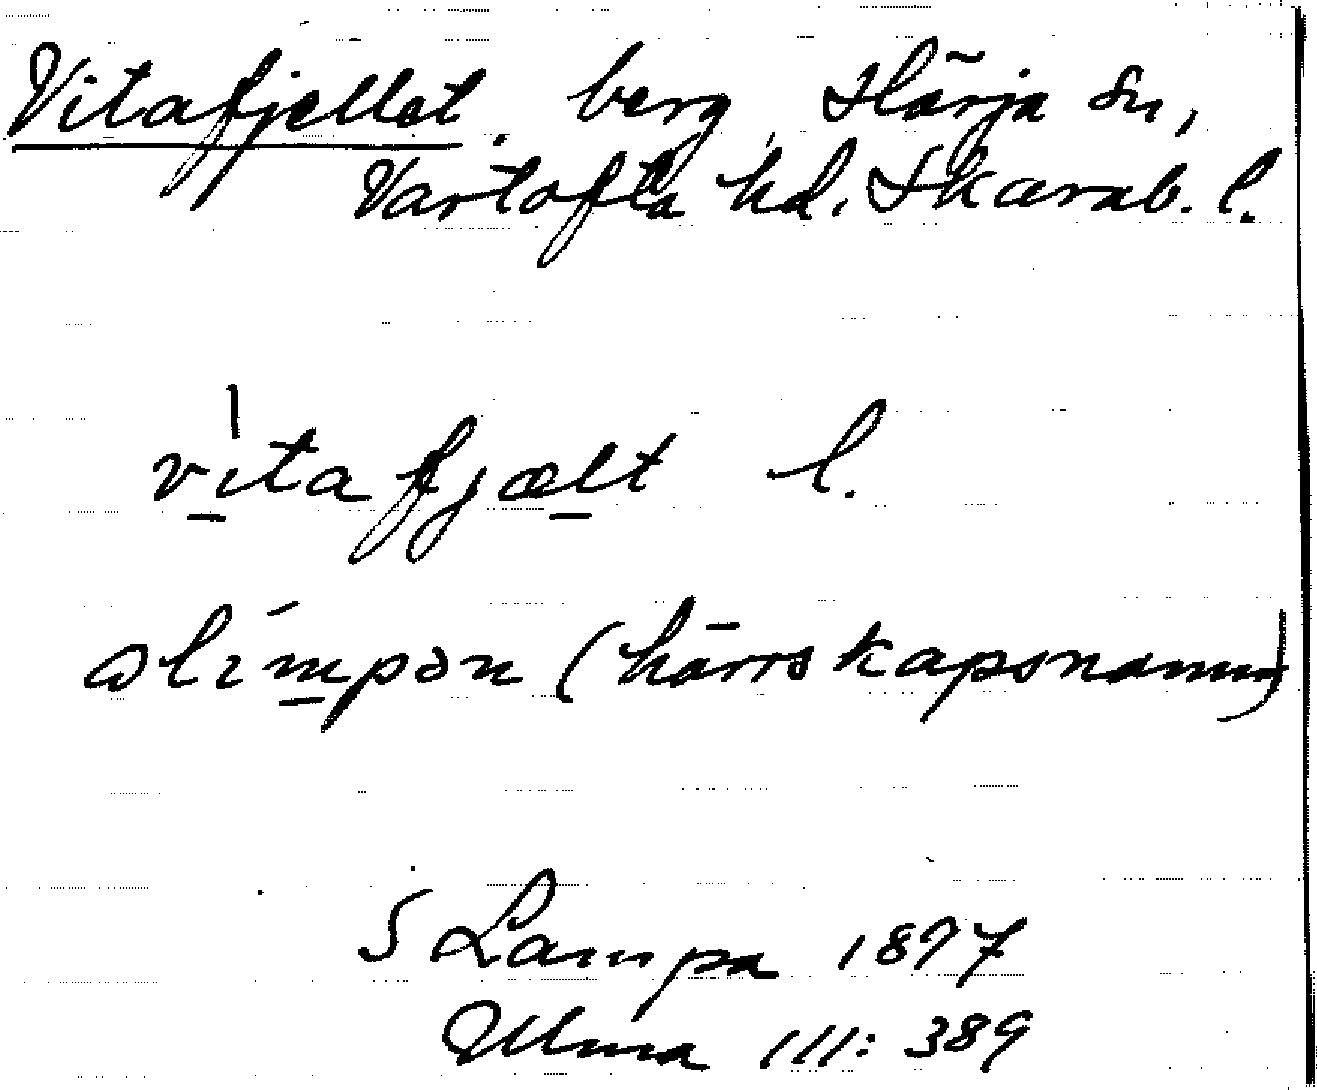 Vitafjellet. berg, Härja sn,
Vartofta hd. Skarab. l.
vitafjælt l.
olimpən (härrskapsnamn)
S Lampa 1897
Ulma 111: 389